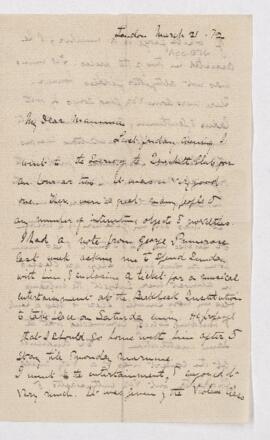 London March 21. /72
My Dear Mamma
Last Friday evening I
went to the Soirée of the Quekett Club for
an hour or two. It was a very good
one. There were a great many people &
any number of interesting objects & novelties.
I had a note from George
last week asking me to spend Sunday
with him & enclosing a ticket for a musical
entertainment at the Birkbeck Institution
to take place on Saturday evening. He proposed
that I should go home with him after &
stay till Monday morning.
I went to the entertainment, & enjoyed it
very much. It was given by the